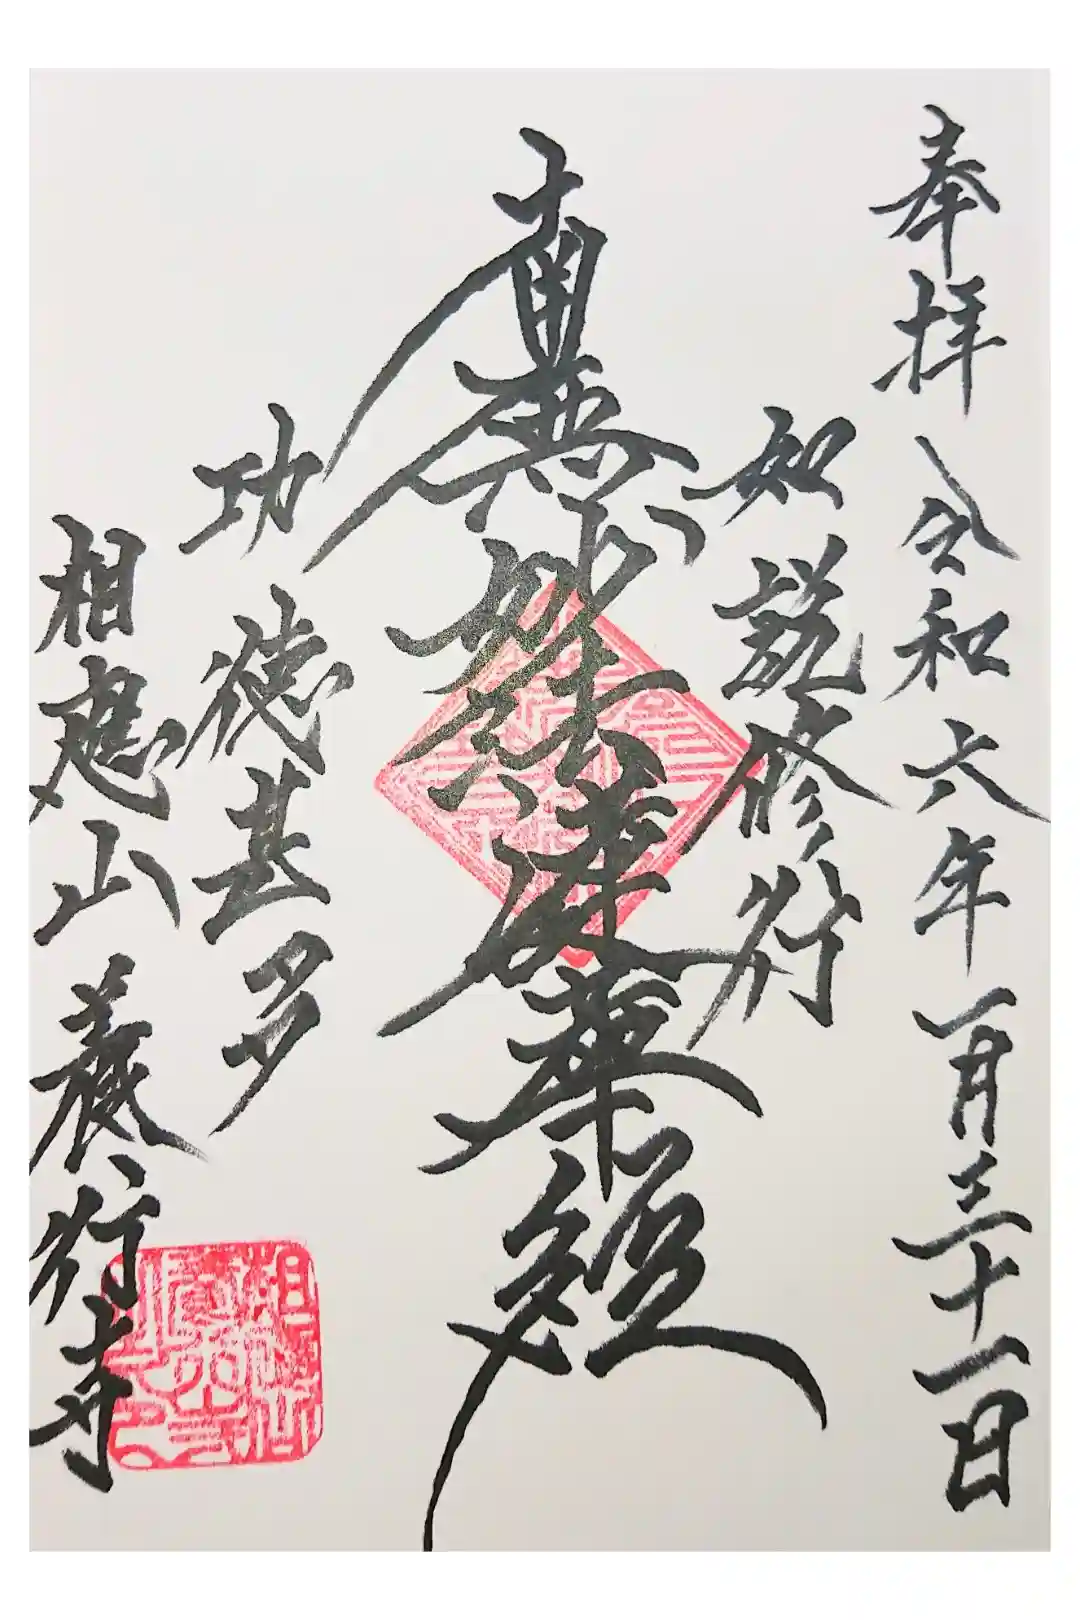 奉拝 令和六年一月三十一日
如説修行
南無妙法蓮華経
功徳甚多
相應山 義行寺